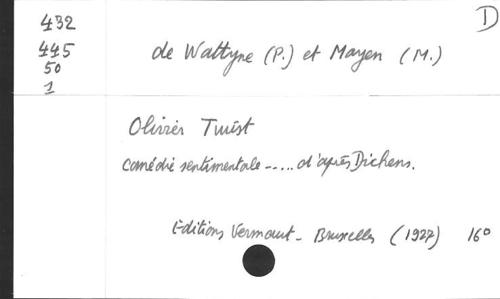 D
432
445
50
1
de Wattyne (P.) et Mayen (M.)
Olivier Twist
comédie sentimentale ..... d'après Dickens.
Editions Vermaut - Bruxelles (1927) 16°